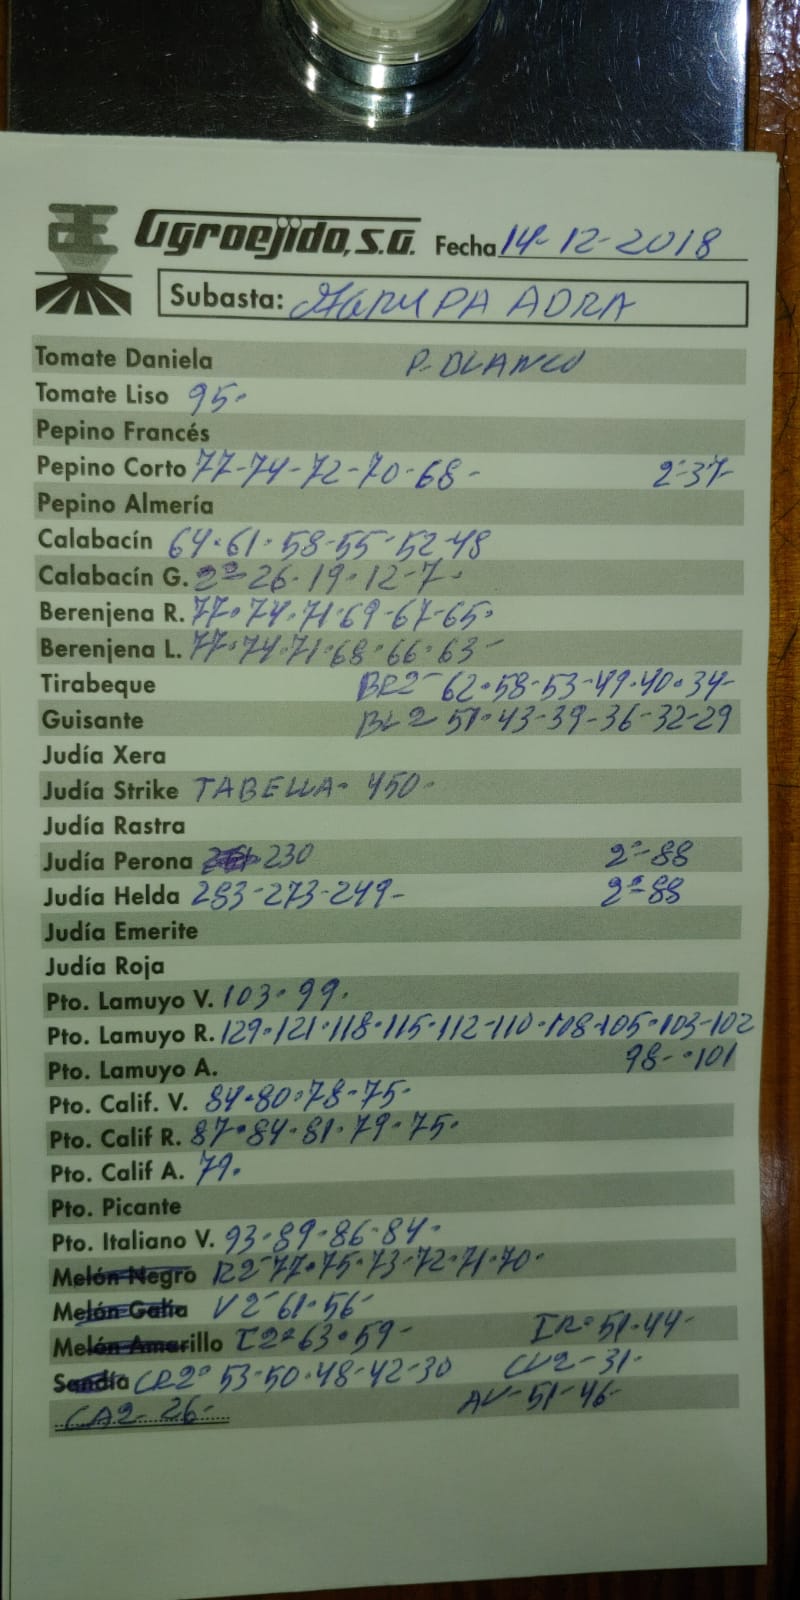 Agroejido, S.A. Fecha 14-12-2018
Subasta: PA ADRA
Tomate Daniela P. BLANCO
Tomate Liso 95.
Pepino Francés
Pepino Corto 77-74-72-70-68- 2ª-37-
Pepino Almería
Calabacín 64.61.58-55-52-48
Calabacín G. 2ª-26.19.12-7.
Berenjena R. 77.74.71.69-67-65.
Berenjena L. 77.74.71.68.66.63-
Tirabeque BR2- 62.58-53-49.40.34-
Guisante BL2 51.43-39-36-32-29
Judía Xera
Judía Strike TABELLA- 450-
Judía Rastra
Judía Perona 230 2ª-88
Judía Helda 283-273-249- 2ª-88
Judía Emerite
Judía Roja
Pto. Lamuyo V. 103.99.
Pto. Lamuyo R. 129.121.118.115.112-110.108.105.103-102
Pto. Lamuyo A. 98-.101
Pto. Calif. V. 84.80.78-75-
Pto. Calif R. 87.84.81.79.75.
Pto. Calif A. 79.
Pto. Picante
Pto. Italiano V. 93.89-86-84-
Melón Negro R2-77.75.73-72.71.70.
Melón Galia V2-61.56-
Melón Amarillo I2ª63.59- IR-51.44-
Sandía CR2ª 53-50.48-42-30 CV2-31-
CA2- 26- AV-51-46-